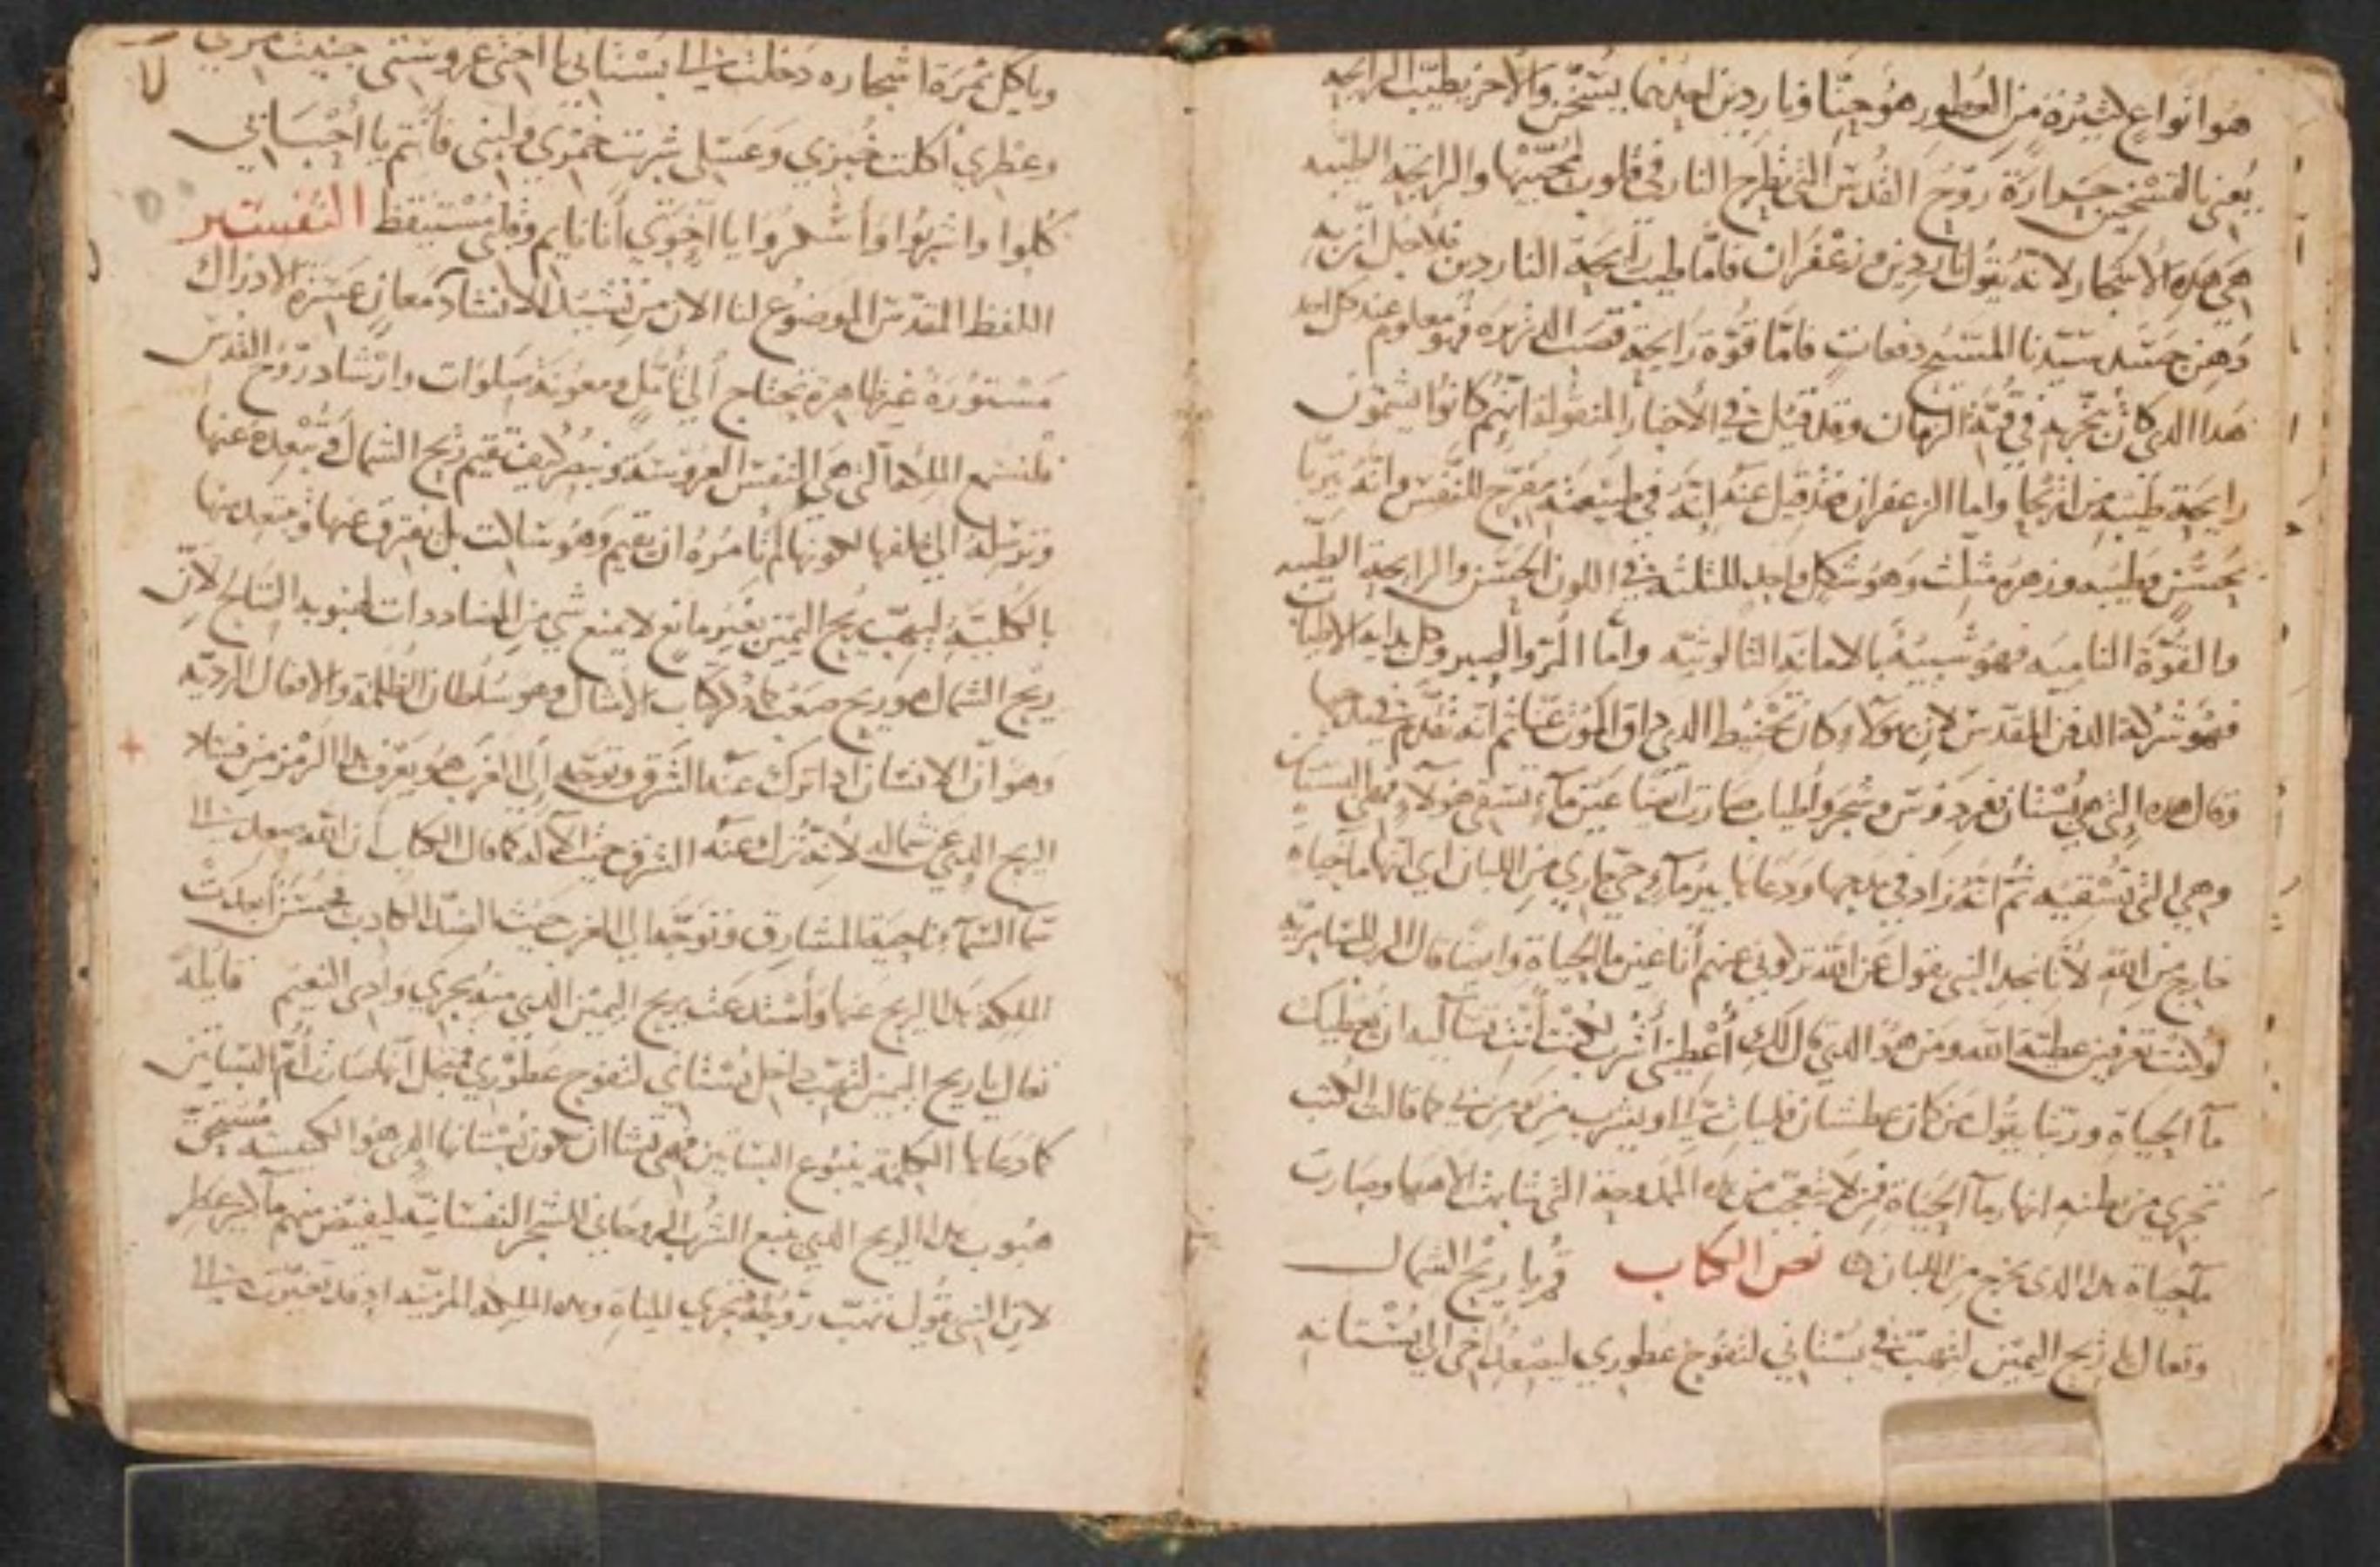 هو انواع كثيرة من العطور هو حنا وناردين احدهما يسخن والاخر يطيب الرايحه
يعني بالتسخين حرارة روح القدس التي تطرح النار في قلوب محبيها والرايحة الطيبه
هي هذه الاشجار لانه يقول ناردين وزعفران فاما طيب رايحة الناردين فلاجل انه
دهن جسد سيدنا المسيح دفعات فاما قوة رايحة قصب الذريره فهو معلوم عند كل احد
هذا الذي كان يبخر به في قبة الزمان وقد قيل في الاخبار المنقولة انهم كانوا يشمون
رايحة طيبه من اريحا واما الزعفران فقد قيل عنه انه في طبيعته مفرح للنفس وانه يربا
بحسن وطيبه وزهره مثلث وهو شكل واحد للثلثة في اللون الحسن والرايحة الطيبه
والقوة الناميه فهو شبيه بالامانة الثالوثيه واما المر والصبر وكل بداية الاطياب
فهو شركة الدفن المقدس لان هولاء كان تحنيط الذي ذاق الموت عنا ثم انه تقدم في مدحها
وقال هذه التي هي بستان فردوس وشجر واطياب صارت ايضا عين ماء تسقي هولاء فهي البستان
وهي التي تسقيه ثم انه زاد في مدحها ودعاها بير ماء حي جاري من اللبان اي انها ماء حياه
خارج من الله لانا نجد النبي يقول عن الله تركوني عنهم انا عين ما الحياة وايضا قال الرب للسامريه
لو كنت تعرفين عطية الله ومن هو الذي قال لك اعطيني اشرب لكنت انت تساليه ان يعطيك
ماء الحياه وربنا يقول من كان عطشان فليات الي ويشرب من يومن بي كما قالت الكتب
تجري من بطنه انهار ماء الحياة فمن لا يتعجب من هذه الممدوحة التي شابهت الاهها وصارت
ماء حياة هذا الذي يخرج من اللبان نص الكتاب قم يا ريح الشمال
وتعال يا ريح اليمين لتهب في بستاني لتفوح عطوري ليصعد اخي الى بستانه
وياكل ثمرة اشجاره دخلت الى بستاني يا اختي عروستي جنيت مري
وعطري اكلت خبزي وعسلي شربت خمري ولبني فانتم يا احبابي
كلوا واشربوا واسكروا يا اخوتي انا نايم وقلبي مستيقظ التفسير
اللفظ المقدس الموضوع لنا الان من نشيد الانشاد معاني عسرة الادراك
مستورة غير ظاهرة تحتاج الى تامل ومعونة صلوات وارشاد روح القدس
فلنسمع الملكة التي هي النفس العروسة وننظر كيف تقيم ريح الشمال وتبعده عنها
وترسله الى خلفها لكونها لم تامره ان يقيم وهو ساكت بل يفترق عنها ويبتعد منها
بالكلية ليهب ريح اليمين بغير مانع لا يمنع شي من المضاددات لهبوبه السابح لان
ريح الشمال هو ريح صعب كما في كتاب الامثال وهو سلطان الظلمة والافعال الرديه
وهو ان الانسان اذا ترك عنه الشرق وتوجه الى الغرب هو يعرف هذا الرمز من قبل
الريح الذي عن شماله لانه ترك عنه الشرق حيث الاله كما قال الكتاب ان الله صعد الى
سما السما ناحية المشارق وتوجه الى الغرب حيث الضد الكاذب فحسنا ابعدت
الملكة هذا الريح عنها واستدعت ريح اليمين الذي منه يجري وادي النعيم قايلة
تعال يا ريح اليمين لتهب داخل بستاني لتفوح عطوري فلاجل انها صارت ام البساتين
كما دعاها الكلمة ينبوع البساتين فهي تشا ان يكون بستانها الذي هو الكنيسه مستحق
هبوب هذا الريح الذي ينبع الشرب الروحاني للشجر النفسانية ليفيض منهم ماء كثير عطر
لان النبي يقول تهب روحه فتجري المياه وهذه الملكة المزينه اذ قد تغيرت الى